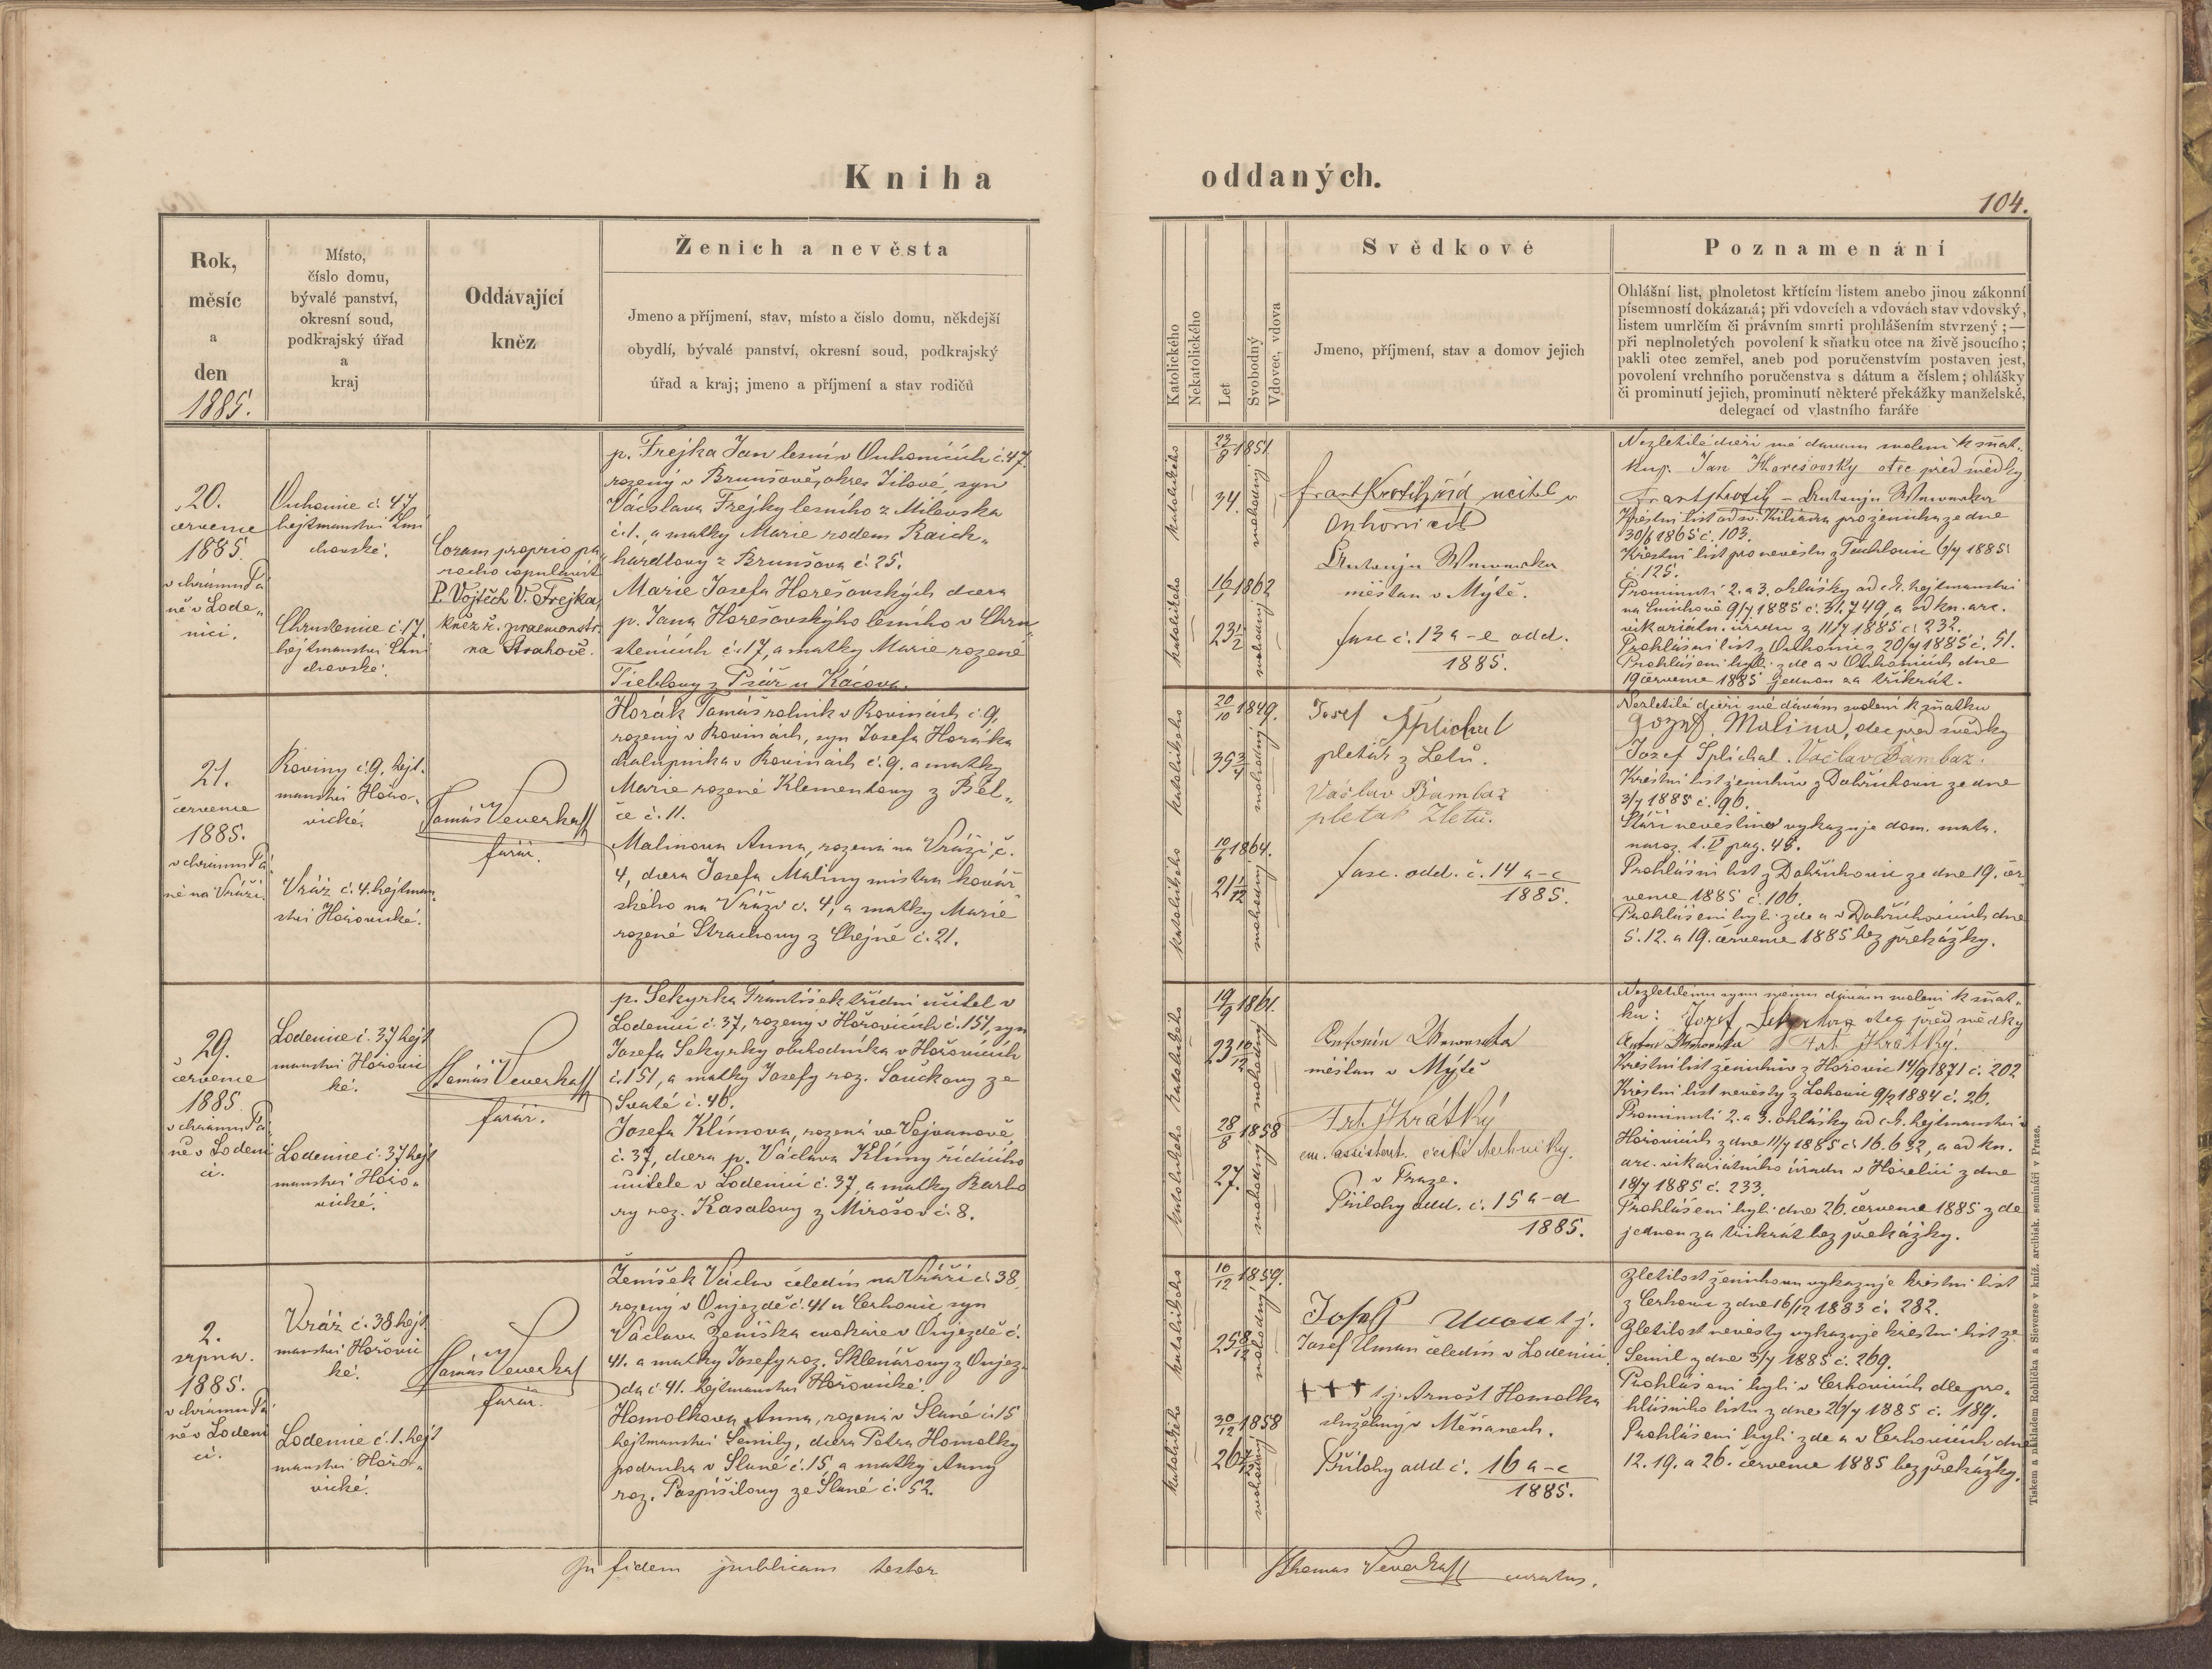 Kniha
oddaných.
104.
Rok,
měsíc
a
den
1885.
Místo,
číslo domu,
bývalé panství,
okresní soud,
podkrajský úřad
a
kraj
Oddávající
kněz
Ženich a nevěsta
Jmeno a příjmení, stav, místo a číslo domu, někdejší
obydlí, bývalé panství, okresní soud, podkrajský
úřad a kraj; jmeno a příjmení a stav rodičů
Katolického
Nekatolického
Let
Svobodný
Vdovec, vdova
Svědkové
Jmeno, příjmení, stav a domov jejich
Poznamenání
Ohlášní list, plnoletost křtícím listem anebo jinou zákonní
písemností dokázaná; při vdovcích a vdovách stav vdovský,
listem umrlčím či právním smrti prohlášením stvrzený; —
při neplnoletých povolení k sňatku otce na živě jsoucího;
pakli otec zemřel, aneb pod poručenstvím postaven jest,
povolení vrchního poručenstva s dátum a číslem; ohlášky
či prominutí jejich, prominutí některé překážky manželské,
delegací od vlastního faráře
20.
července
1885.
v chrámu Pá
ně v Lode„
nici.
Ouhonice č. 47
hejtmanství Smí
chovské.
Chrustenice č. 17.
hejtmanství Smí
chovské.
Coram proprio pa„
rocho copulavit
P. Vojtěch V. Frejka,
kněz ř. praemonstr.
na Strahově.
p. Frejka Jan lesní v Ouhonicích č. 47.
rozený v Brunšově, okres Jílové, syn
Václava Frejky lesního z Milevska
č. 1., a matky Marie rodem Raich„
hardlovy z Brunšova č. 25.
Marie Josefa Horešovských dcera
p. Jana Horešovskýho lesního v Chru„
stenicích č. 17, a matky Marie rozené
Tieblovy z Psář u Kácova.
katolického
23/8 1851.
34.
svobodný
katolického
16/1 1862
23 1/2
svobodný
Frant. Krotil, říd. učitel v
Ouhonicích
měšťan v Mýtě.
fasc. č. 13 a-e odd.
1885.
Nezletilé dceři mé dávám svolení k sňat„
ku: Jan Horešovský otec před svědky
Křestní list od sv. Kiliána pro ženicha ze dne
30/6 1865 č. 103.
Křestní list pro nevěstu z Tachlovic 6/7 1885
č. 125.
Prominutí 2. a 3. ohlášky od ck. hejtmanství
na Smíchově 9/7 1885 č. 31.749, a od kn. arc.
vikariátn. úřadu z 11/7 1885 č. 232.
Prohlášní list z Ouhonic 20/7 1885 č. 51.
Prohlášeni byli zde a v Ouhonicích dne
19 července 1885 jednou za třikrát.
21.
července
1885.
v chrámu Pá
ně na Vráži.
Roviny č. 9, hejt.
manství Hořo„
vické.
Vráž č. 4. hejtman„
ství Hořovické.
Tomáš Veverka
farář.
Horák Tomáš rolník v Rovinách č. 9,
rozený v Rovinách, syn Josefa Horáka
chalupníka v Rovinách č. 9. a matky
Marie rozené Klementovy z Běl„
če č. 11.
Malinova Anna, rozená na Vráži č.
4, dcera Josefa Maliny mistra kovář
ského na Vráži č. 4, a matky Marie
rozené Strachovy z Chejně č. 21.
katolického
20/10 1849.
35 3/4
svobodný
katolického
10/6 1864.
21 1/12
svobodný
Josef Šplichal
pletář z Letů.
Václav Bambaz
pletař Zletů.
fasc. odd. č. 14 a-c
1885.
Nezletilé dceři své dávám svolení k sňatku
Jozef Malina, otec před svědky
Josef Šplichal. Václav Bambaz.
Křestní list ženichův z Dobřichovic ze dne
3/7 1885 č. 96.
Stáří nevěstino vykazuje dom. matr.
naroz. t. II pag. 46.
Prohlášní list z Dobřichovic ze dne 19. čer„
vence 1885 č. 106.
Prohlášeni byli zde a v Dobřichovicích dne
5. 12. a 19. července 1885 bez překážky.
29.
července
1885
v chrámu Pá
ně v Loděni
ci.
Lodenice č. 37 hejt
manství Hořovic
ké.
Lodenice č. 37 hejt
manství Hořo„
vické.
Tomáš Veverka
farář.
p. Sekyrka František třídní učitel v
Lodenici č. 37, rozený v Hořovicích č. 151, syn
Josefa Sekyrky obchodníka v Hořovicích
č. 151, a matky Josefy roz. Součkovy ze
Svaté č. 40.
Josefa Klímova, rozená ve Vejvanově
č. 37, dcera p. Václava Klímy řídícího
učitele v Lodenici č. 37, a matky Barbo
ry roz. Kasalovy z Mirošova č. 8.
katolického
19/9 1861.
23 10/12
svobodný
katolického
28/8 1858
27.
svobodný
měšťan v Mýtě
Frt. Krátký
em. assistent. české techniky.
v Praze.
Přílohy odd. č. 15 a-d
1885.
Nezletilému synu svému dávám svolení k sňat„
ku: Jozef Sekyrka otec před svědky
Frt. Krátký.
Křestní list ženichův z Hořovic 14/9 1871 č. 202
Křestní list nevěsty z Lohovic 9/2 1884 č. 26.
Prominutí 2. a 3. ohlášky od ck. hejtmanství v
Hořovicích z dne 11/7 1885 č. 16.632, a od kn.
arc. vikariátního úřadu v Hořelici z dne
18/7 1885 č. 233.
Prohlášeni byli dne 26. července 1885 zde
jednou za třikrát bez překážky.
2.
srpna.
1885.
v chrámu Pá
ně v Loděni
ci.
Vráž č. 38 hejt
manství Hořovic
ké.
Lodenice č. 1. hejt
manství Hořo„
vické.
Tomáš Veverka
farář.
Ženíšek Václav čeledín na Vráži č. 38.
rozený v Oujezdě č. 41 u Cerhovic, syn
Václava Ženíška cvokaře v Oujezdě č.
41. a matky Josefy roz. Sklenářovy z Oujez„
da č. 41. hejtmanství Hořovické.
Homolkova Anna, rozená v Slané č. 15
hejtmanství Semily, dcera Petra Homolky
podruha v Slané č. 15 a matky Anny
roz. Pospíšilovy ze Slané č. 52.
katolického
16/12 1859.
25 8/12
svobodný
katolického
30/12 1858
26 7/12
svobodný
Josef Uman čeledín v Lodenici.
+++ t. j. Arnošt Homolka
služebný v Měňanech.
Přílohy odd č. 16 a-c
1885.
Zletilost ženichovu vykazuje křestní list
z Cerhovic z dne 16/12 1883 č. 282.
Zletilost nevěsty vykazuje křestní list ze
Semil z dne 3/7 1885 č. 269.
Prohlášeni byli v Cerhovicích dle pro„
hlášního listu z dne 26/7 1885 č. 189.
Prohlášeni byli zde a v Cerhovicích dne
12. 19. a 26. července 1885 bez překážky.
In fidem publicam testor
Thomas Veverka curatus.
Tiskem a nákladem Rohlíčka a Sieverse v kníž. arcibisk. semináři v Praze.